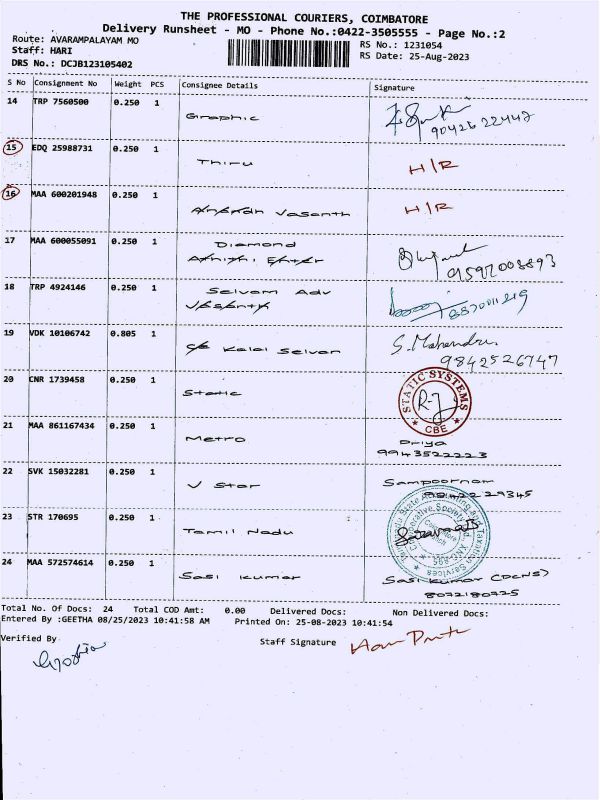 THE PROFESSIONAL COURIERS, COIMBATORE
Delivery Runsheet - MO - Phone No.:0422-3505555 - Page No.:2
Route: AVARAMPALAYAM MO
RS No.: 1231054
Staff: HARI
RS Date: 25-Aug-2023
DRS No.: DCJB123105402
S No Consignment No Weight PCS Consignee Details Signature
14 TRP 7560500 0.250 1 Graphic
90426 22447
15 EDQ 25988731 0.250 1 Thiru H/R
16 MAA 600201948 0.250 1 Vasanth H/R
17 MAA 600055091 0.250 1 Diamond
9597008893
18 TRP 4924146 0.250 1 Selvam Adv
19 VDK 10106742 0.805 1 Kalai Selvan S. Mahendra
9842526747
20 CNR 1739458 0.250 1 Static STATIC SYSTEMS R-J CBE
21 MAA 861167434 0.250 1 Metro Priya
9943522223
22 SVK 15032281 0.250 1 V Star Sampoornam
23 STR 170695 0.250 1 Tamil Nadu
24 MAA 572574614 0.250 1 Sasi Kumar Sasi Kumar
8072180225
Total No. Of Docs: 24 Total COD Amt: 0.00 Delivered Docs: Non Delivered Docs:
Entered By :GEETHA 08/25/2023 10:41:58 AM Printed On: 25-08-2023 10:41:54
Verified By Staff Signature